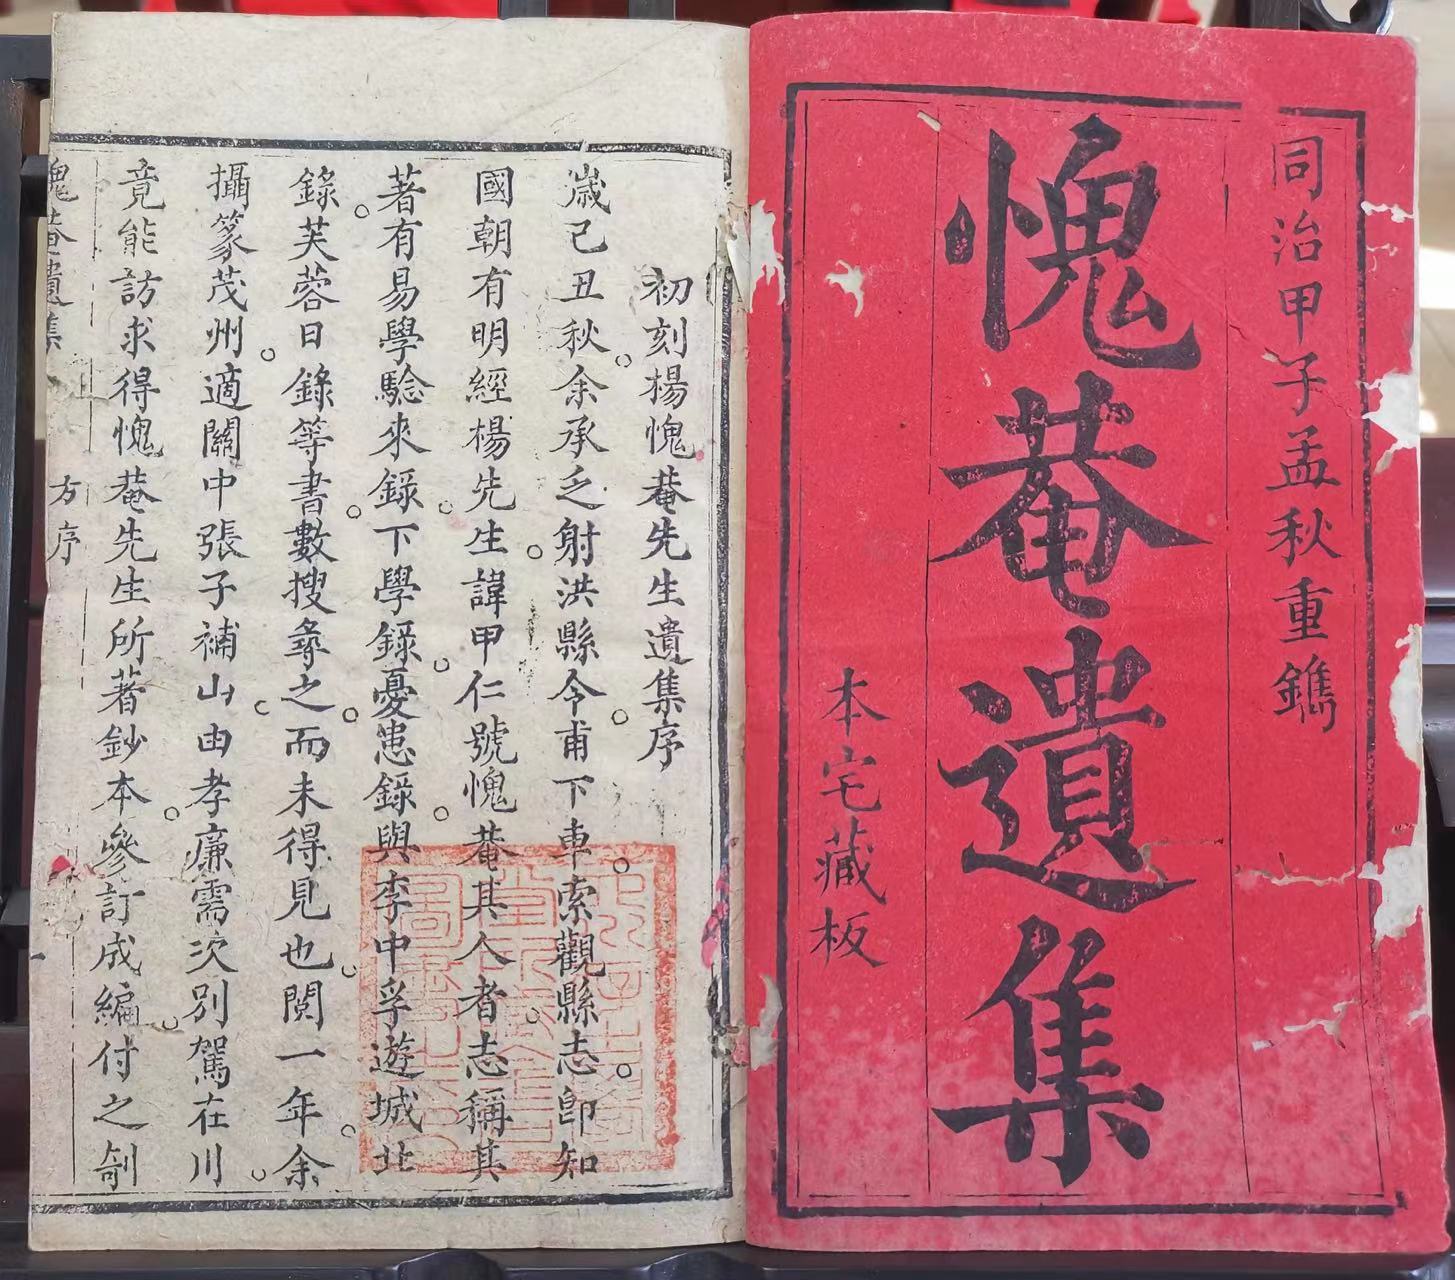 同治甲子孟秋重鐫
愧菴遺集
本宅藏板
初刻楊愧菴先生遺集序
歲己丑秋余承乏射洪縣令甫下車索觀縣志卽知
國朝有明經楊先生諱甲仁號愧菴其人者志稱其
著有易學騐來錄下學錄憂患錄與李中孚遊城北
錄芙蓉日錄等書數搜尋之而未得見也閱一年余
攝篆茂州適關中張子補山由孝廉需次別駕在川
竟能訪求得愧菴先生所著鈔本參訂成編付之剞
愧菴遺集
方序